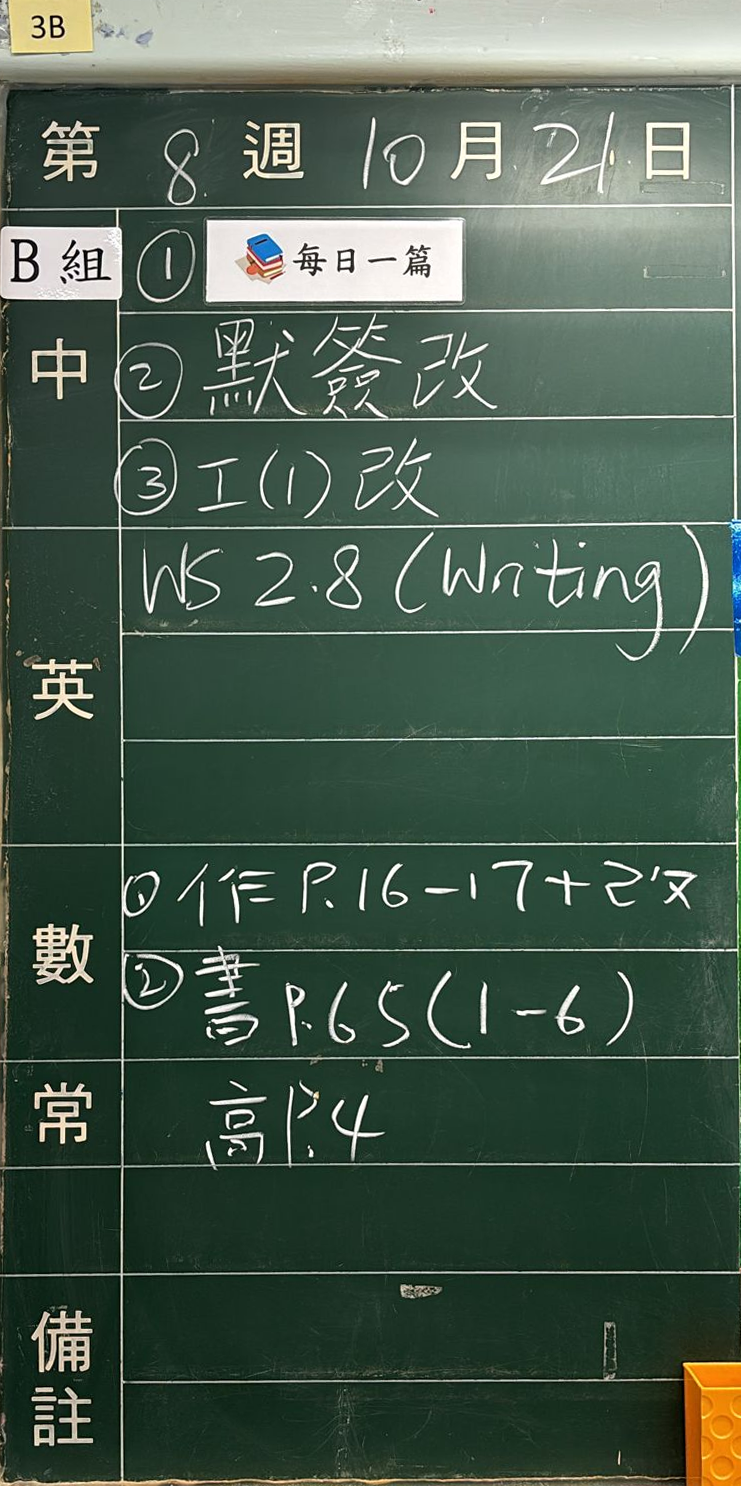 3B
第 8 週 10 月 21 日
B 組 ① 每日一篇
中 ② 默簽改
③ 工(1) 改
英 WS 2.8 (Writing)
數 ① 作 P.16-17+改
② 書 P.65(1-6)
常 高 P.4
備註